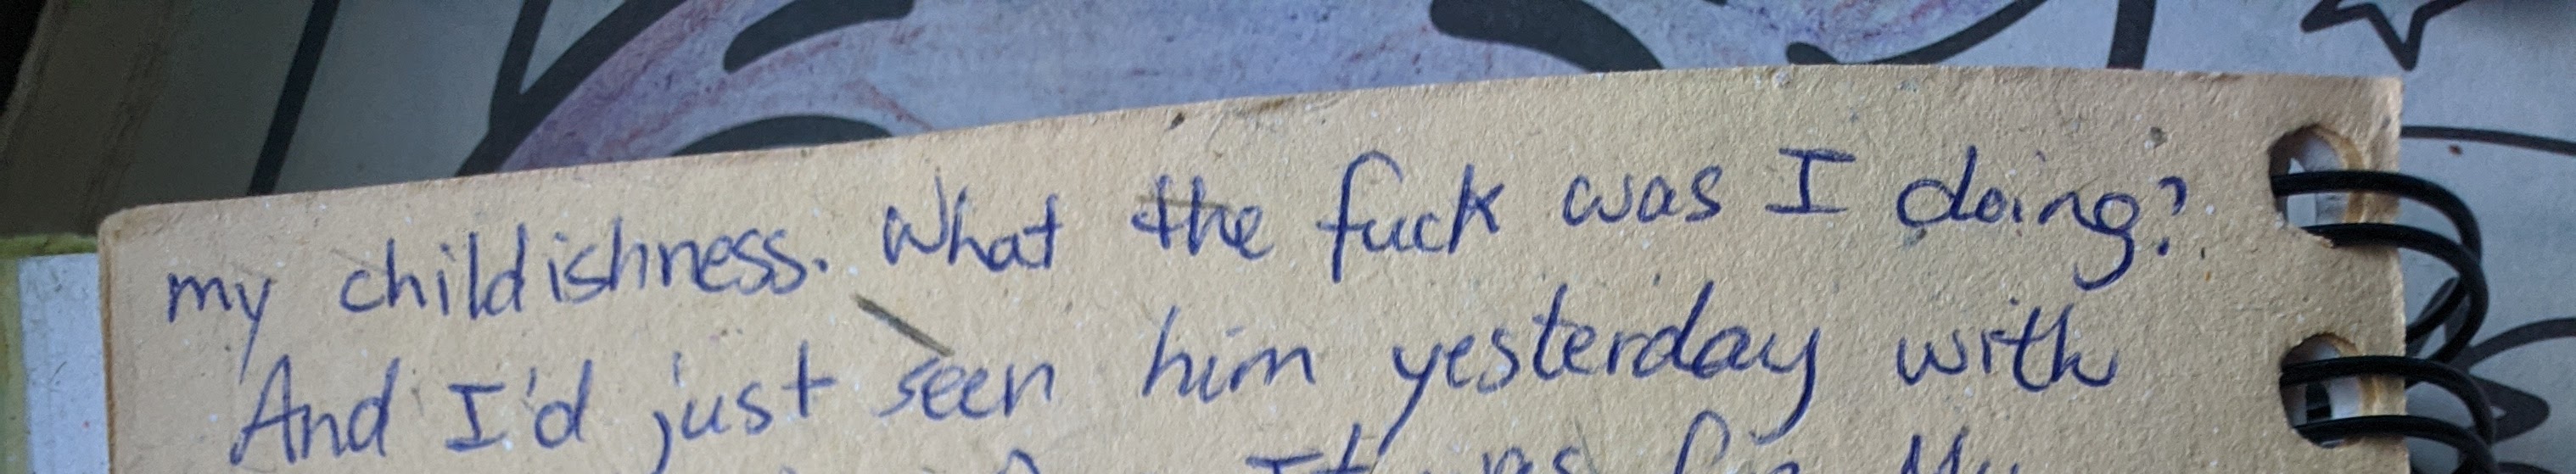 my childishness. What the fuck was I doing?
And I'd just seen him yesterday with